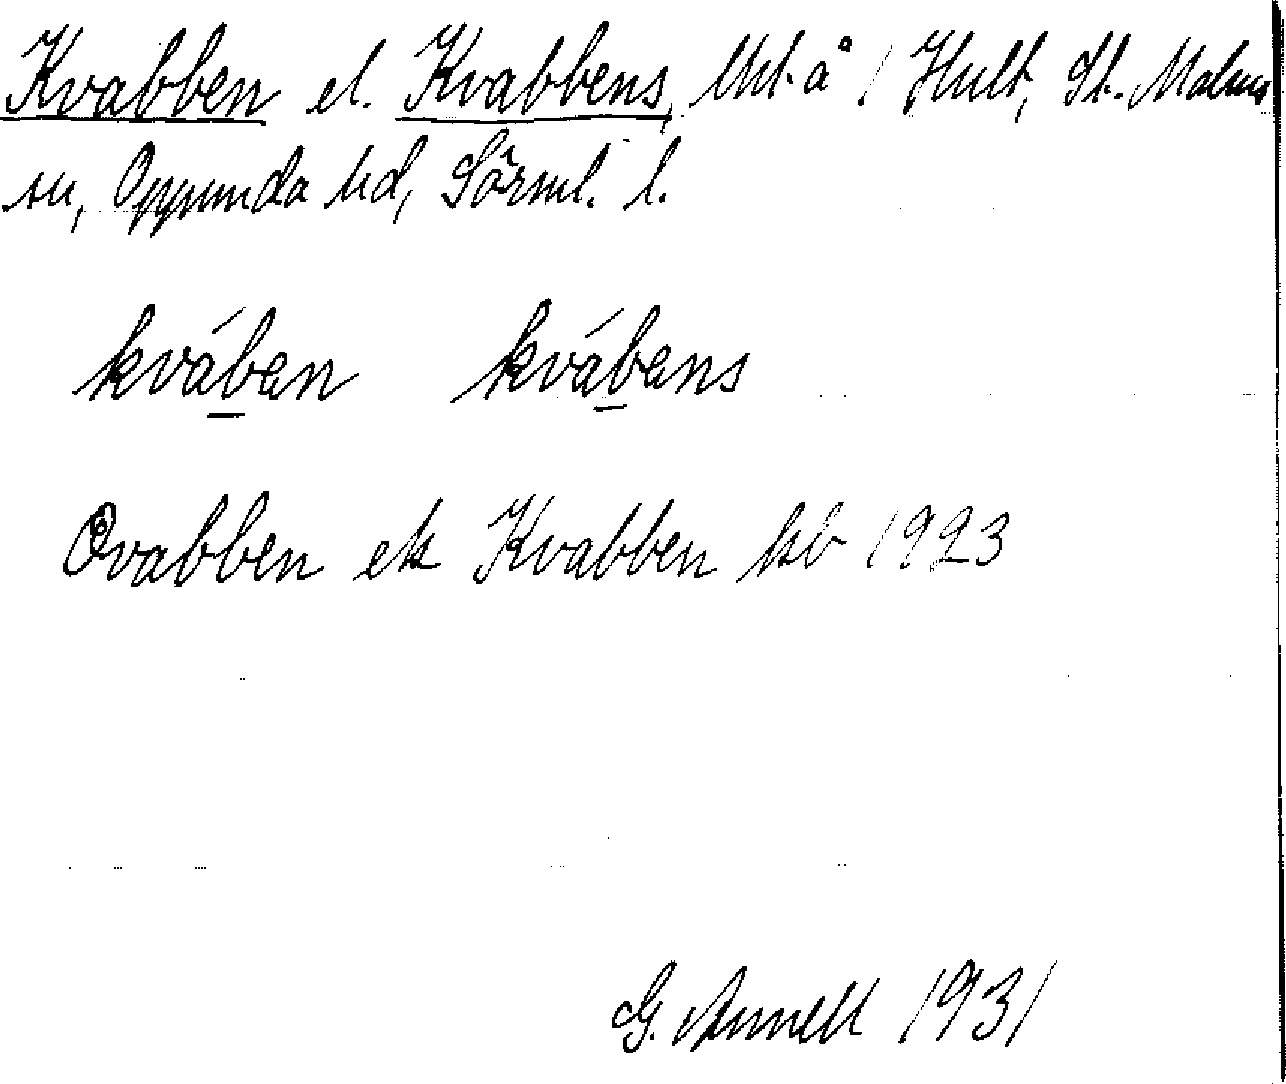 Kvabben el. Kvabbens, lht å 1 Hult, St. Malms
sn, Oppunda hd, Sörml. l.
kvában kvábans
Qvabben ek Kvabben kb 1923
G. Annell 1931